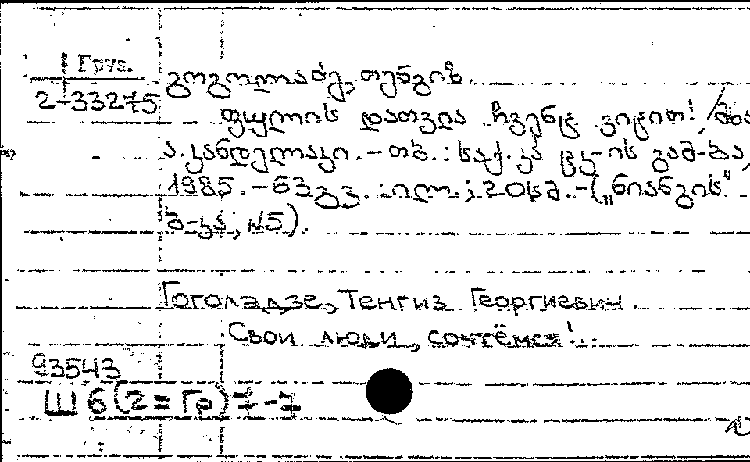 Груз.
2-33275
გოგოლაძე, თენგიზ.
ფულის დათვლა ჩვენც ვიცით! /მხ
ა. კანდელაკი. - თბ. : საქ. კპ ცკ-ის გამ-ბა,
1985. - 63 გვ. : ილ. ; 20 სმ. - („ნიანგის“
ბ-კა ; №5).
Гоголадзе, Тенгиз Георгиевич.
Свои люди, сочтёмся!..
93543
Ш 6(2=Гр)7-7